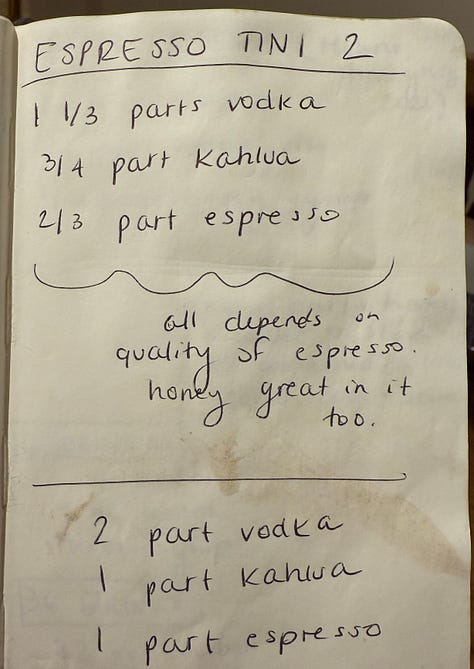 ESPRESSO TINI 2
1 1/3 parts vodka
3/4 part Kahlua
2/3 part espresso
all depends on
quality of espresso.
honey great in it
too.
2 part vodka
1 part kahlua
1 part espresso